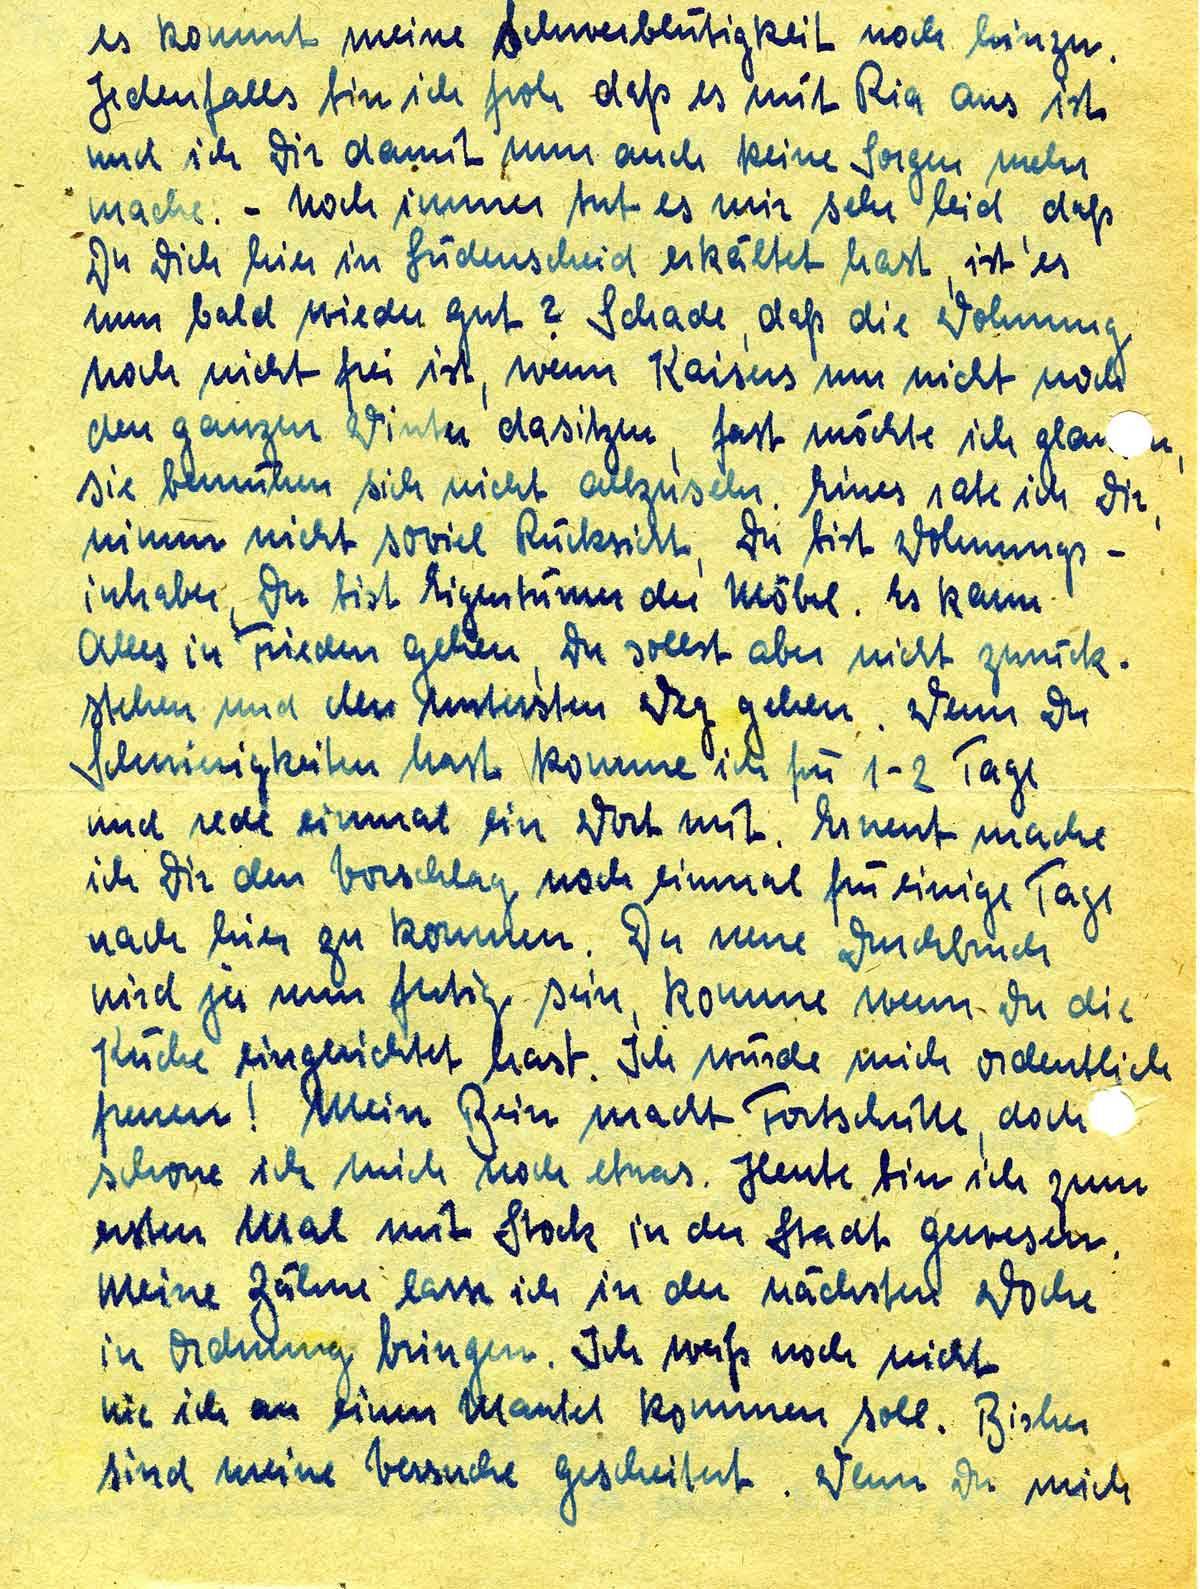 es kommt meine Schwerblütigkeit noch hinzu.
Jedenfalls bin ich froh daß es mit Ria aus ist
und ich Dir damit nun auch keine Sorgen mehr
mache. - Noch immer tut es mir sehr leid, daß
Du Dich hier in Lüdenscheid erkältet hast, ist es
nun bald wieder gut? Schade, daß die Wohnung
noch nicht frei ist, wenn Kaisers nun nicht noch
den ganzen Winter dasitzen, fast möchte ich glau
sie bemühen sich nicht allzusehr. Eines rate ich Dir,
nimm nicht soviel Rücksicht, Du bist Wohnungs-
inhaber, Du bist Eigentümer der Möbel. Es kann
Alles in Frieden gehen, Du sollst aber nicht zurück-
stehen und den untersten Weg gehen. Wenn Du
Schwierigkeiten hast komme ich für 1-2 Tage
und rede einmal ein Wort mit. Erneut mache
ich Dir den Vorschlag noch einmal für einige Tage
nach hier zu kommen. Der neue Durchbruch
wird ja nun fertig sein, komme wenn Du die
Küche eingerichtet hast. Ich würde mich ordentlich
freuen! Mein Bein macht Fortschritte, doch
schone ich mich noch etwas. Heute bin ich zum
ersten Mal mit Stock in der Stadt gewesen.
Meine Zähne lasse ich in der nächsten Woche
in Ordnung bringen. Ich weiß noch nicht
wie ich an einen Mantel kommen soll. Bisher
sind meine Versuche gescheitert. Wenn Du mich